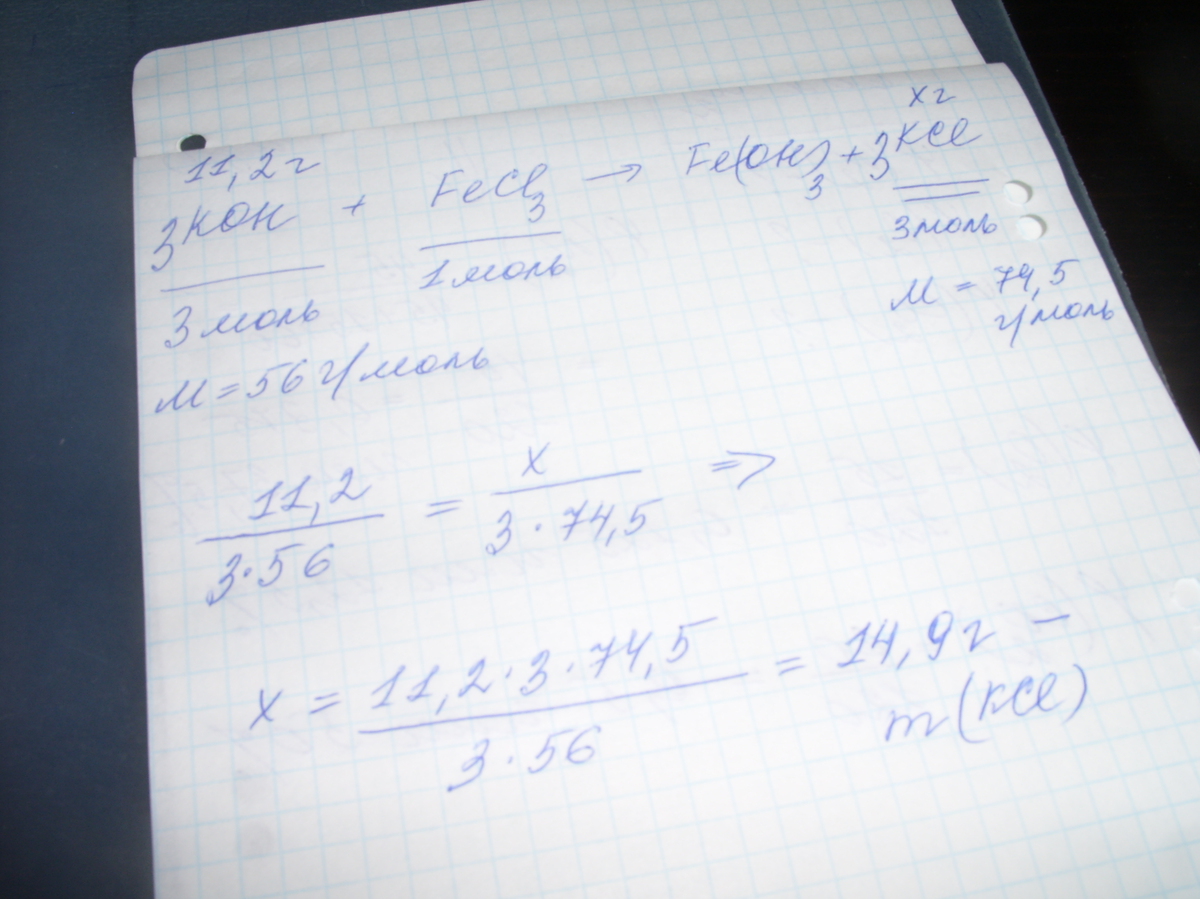 11,2г xг
3KOH + FeCl3 → Fe(OH)3 + 3KCl
3 моль 1 моль 3 моль
M = 56 г/моль M = 74,5 г/моль
11,2 / 3·56 = x / 3·74,5 =>
x = 11,2·3·74,5 / 3·56 = 14,9г –
m(KCl)